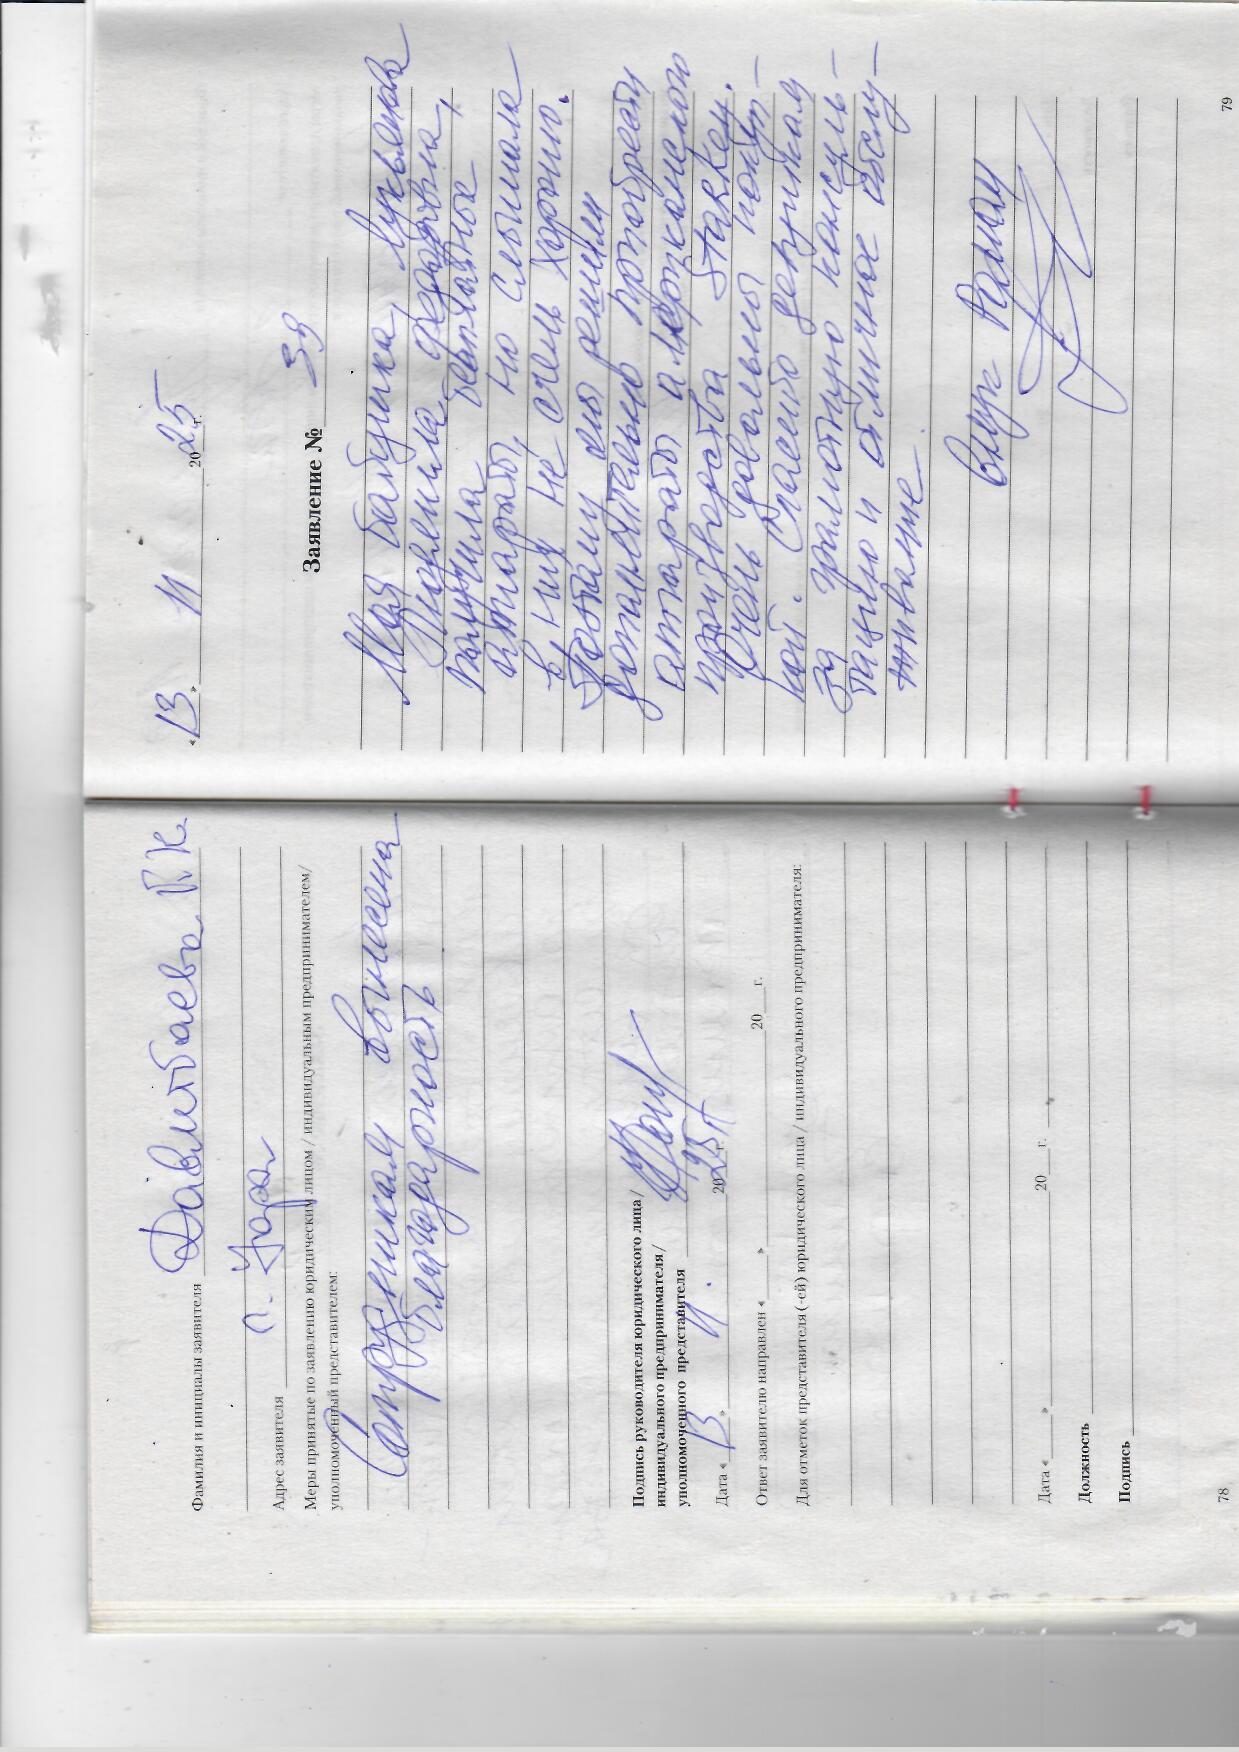 Фамилия и инициалы заявителя Давлитбаева Г.К.
Адрес заявителя п.
Меры принятые по заявлению юридическим лицом / индивидуальным предпринимателем/
уполномоченный представителем:
Сотрудникам вынесена
благодарность
Подпись руководителя юридического лица/
индивидуального предпринимателя/
уполномоченного представителя
Дата « 13 » 11. 2025 г.
Ответ заявителю направлен « » 20 г.
Для отметок представителя (-ей) юридического лица / индивидуального предпринимателя:
Дата « » 20 г.
Должность
Подпись
78
« 13 » 11 2025 г.
Заявление № 39
Моя бабушка,
получила бесплатные
аппараты, но слышала
в них не очень хорошо.
Поэтому мы решили
дополнительно приобрести
аппараты американского
производства Starkey.
Очень довольны покуп-
кой. Спасибо девушкам
за грамотную консуль-
тацию и отличное обслу-
живание.
Внук Роман
79